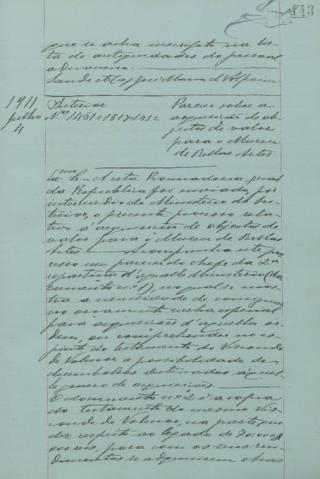 143
que se acha inscripto na lis-
ta de antiguidades do pessoal
aduaneiro.
Saude e Frat. José Maria d'Alpoim
1911
Julho
4
Interior
Nº 1461 e 1517-145 c
Parecer sobre a
acquisição de ob-
jectos de valor
para o Museu
de Bellas Artes
A esta Procuradoria geral
da Republica foi enviado, por
intermedio do Ministerio do In-
terior, o presente processo rela-
tivo á acquisição de objectos de
valor para o Museu de Bellas
Artes. Acompanha este pro-
cesso um parecer do chefe da 2ª
repartição d'aquelle Ministerio (do-
cumento nº 1), no qual se mos-
tra a necessidade de consignar
no orçamento verba especial
para acquisições d'aquella or-
dem, ou
do testamento do Visconde
de Valmor a possibilidade de
desembolsos destinados áquel-
le genero de acquisições.
O documento nº 2 é a copia
do testamento do mesmo Vis-
conde de Valmor, na parte que
diz respeito ao legado de
para com os seus ren-
dimentos se adquirirem obras